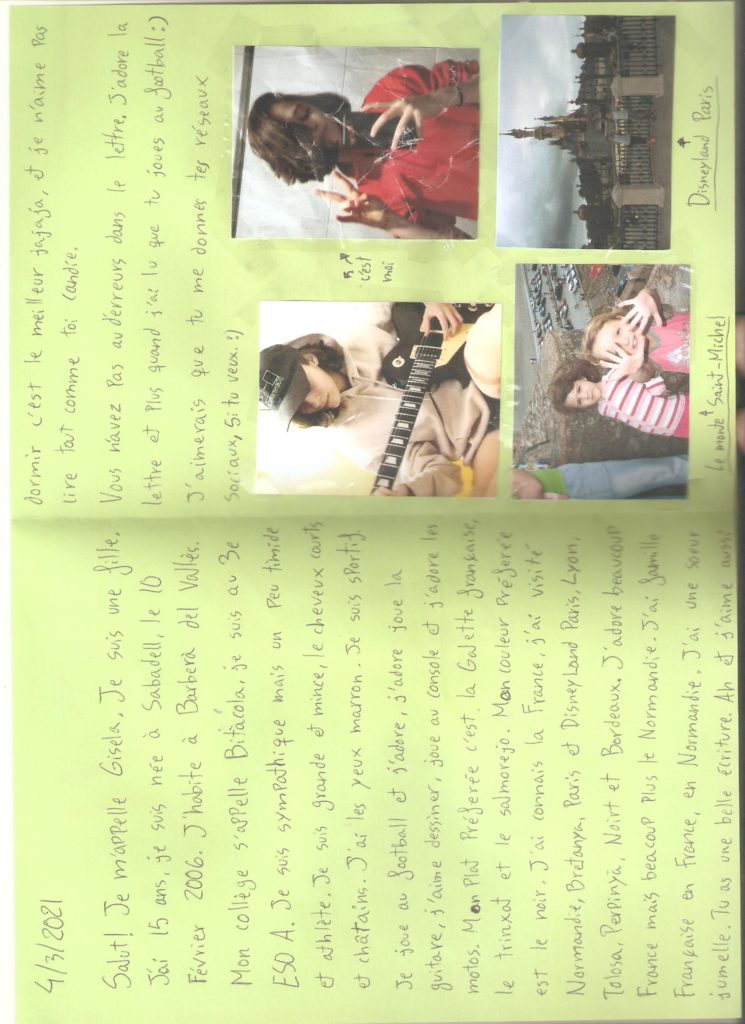 4/3/2021
Salut! Je m'appelle Gisela, Je suis une fille.
J'ai 15 ans, je suis née à Sabadell, le 10
Février 2006. J'habite à Barberà del Vallès.
Mon collège s'appelle Bitàcola, je suis au 3e
ESO A. Je suis sympathique mais un peu timide
et athlète. Je suis grande et mince, le cheveux courts
et châtains. J'ai les yeux marron. Je suis sportif.
Je joue au football et j'adore, j'adore joue la
guitare, j'aime dessiner, joue au console et j'adore les
motos. Mon Plat Préferée c'est la Galette française,
le trinxat et le salmorejo. Mon couleur Préferée
est le noir. J'ai connais la France, j'ai visité
Normandie, Bretanya, Paris et Disneyland Paris, Lyon,
Tolosa, Perpinyà, Noirt et Bordeaux. J'adore beaucoup
France mais beacoup Plus le Normandie. J'ai famille
Française en France, en Normandie. J'ai une soeur
jumelle. Tu as une belle écriture. Ah et j'aime aussi
dormir c'est le meilleur jajaja, et je n'aime pas
lire tout comme toi Candie.
Vous n'avez Pas au d'erreurs dans le lettre. J'adore la
lettre et Plus quand j'ai lu que tu joues au football :)
J'aimerais que tu me donnes tes réseaux
Sociaux, si tu veux. :)
c'est
moi
Disneyland Paris
Le monte Saint-Michel